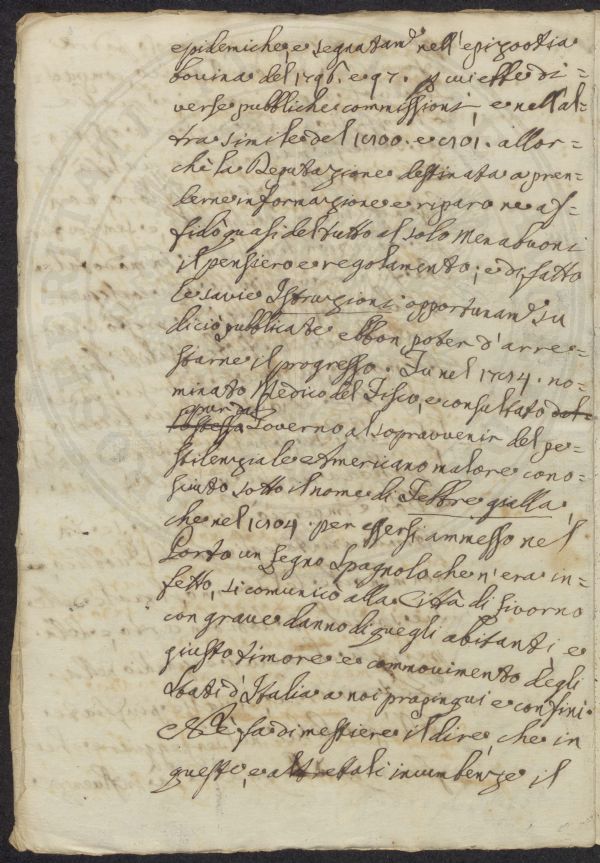 epidemiche e segnatam.e nell'epizootia
bovina del 1796. e 97. p cui ebbe di=
verse pubbliche commissioni, e nell'al=
tra simile del 1800. e 801. allor=
chè la Deputazione destinata a pren=
derne informazione e riparo ne af=
fidò quasi del tutto al solo Menabuoni
il pensiero e regolamento; e difatto
le savie Istruzioni opportunam.e su
di ciò pubblicate ebbon poter d'arre=
starne il progresso. Fu nel 1804. no=
minato Medico del Fisco, e consultato
pur dal
Governo al sopravvenir del pe=
stilenziale Americano malore cono=
sciuto sotto il nome di Febbre gialla,
che nel 1804. per essersi ammesso nel
Porto un Legno Spagnolo che n'era in=
fetto, si comunicò alla Città di Livorno
con grave danno di quegli abitanti, e
giusto timore e commovimento degli
Stati d'Italia a noi propinqui e confini.
Nè fa di mestiere il dire, che in
queste, e altre tali incumbenze il